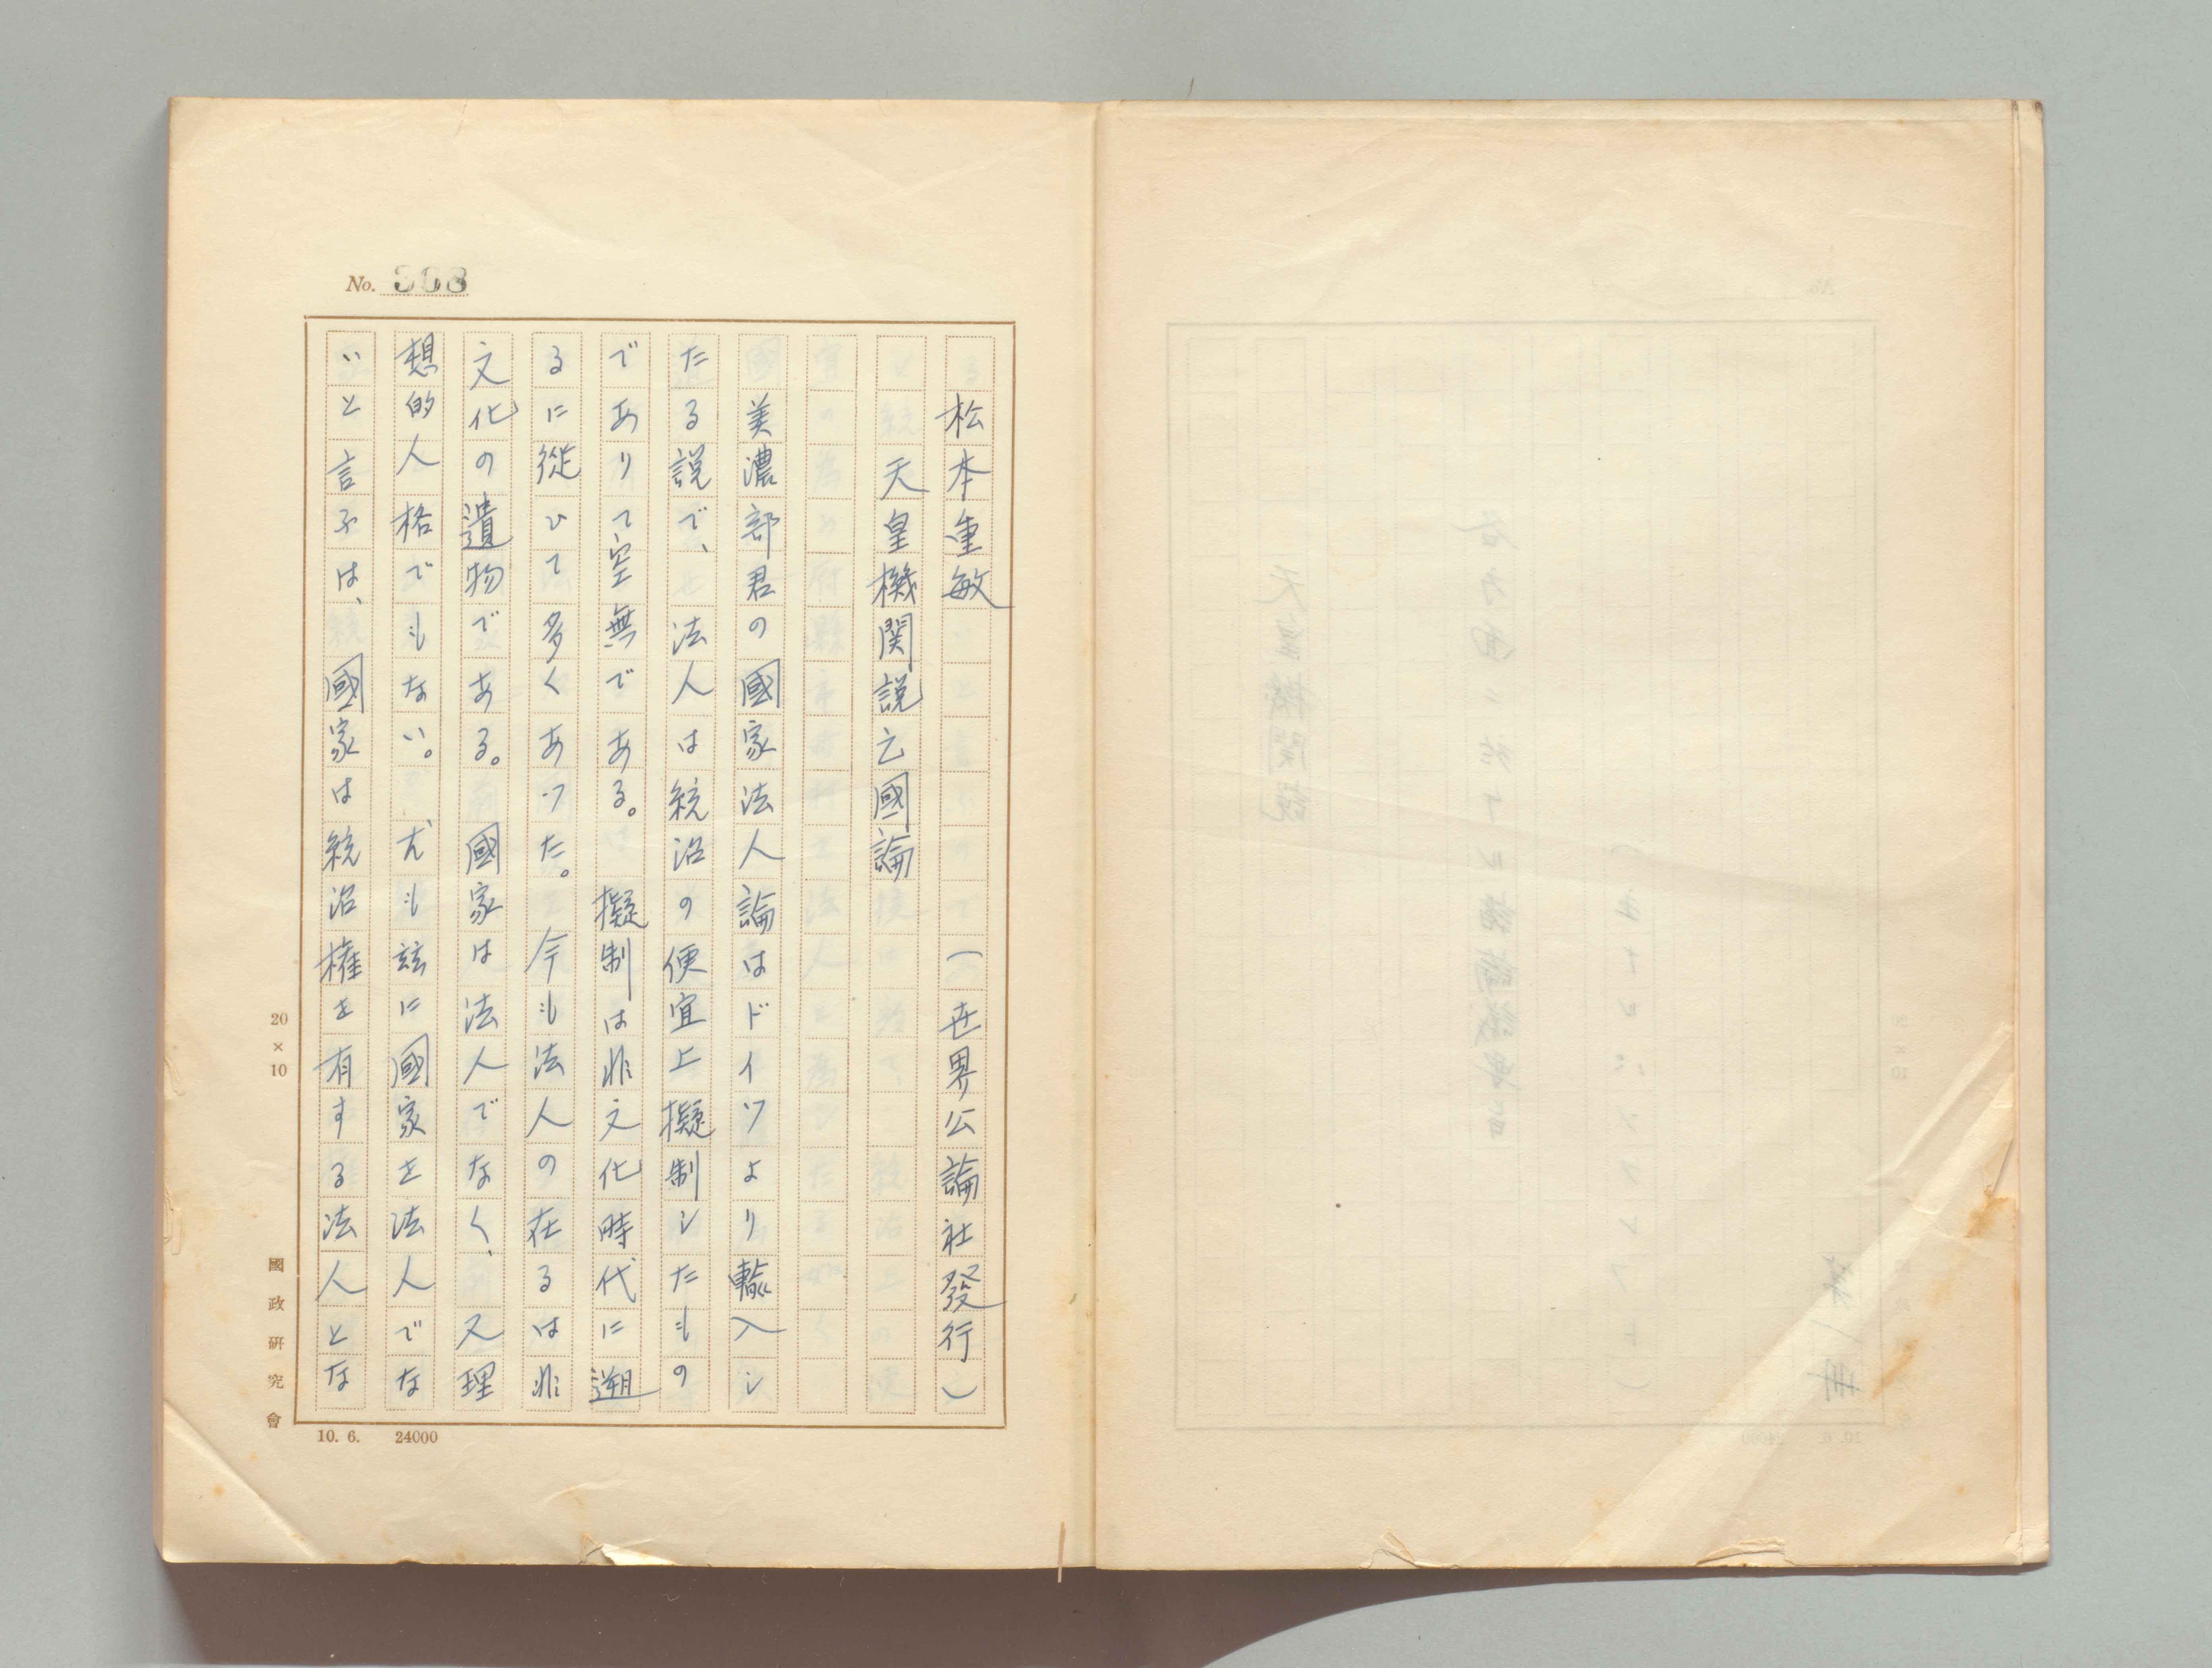 No. 368
松本重敏（世界公論社發行）
天皇機関説之國論
美濃部君の國家法人論はドイツより輸入し
たる説で、法人は統治の便宜上擬制したもの
でありて空無である。擬制は非文化時代に遡
るに從ひて多くあつた。今も法人の在るは非
文化の遺物である。國家は法人でなく、又理
想的人格でもない。尤も玆に國家を法人でな
いと言ふは、國家は統治權を有する法人とな
20×10
國政研究會
10. 6. 24000